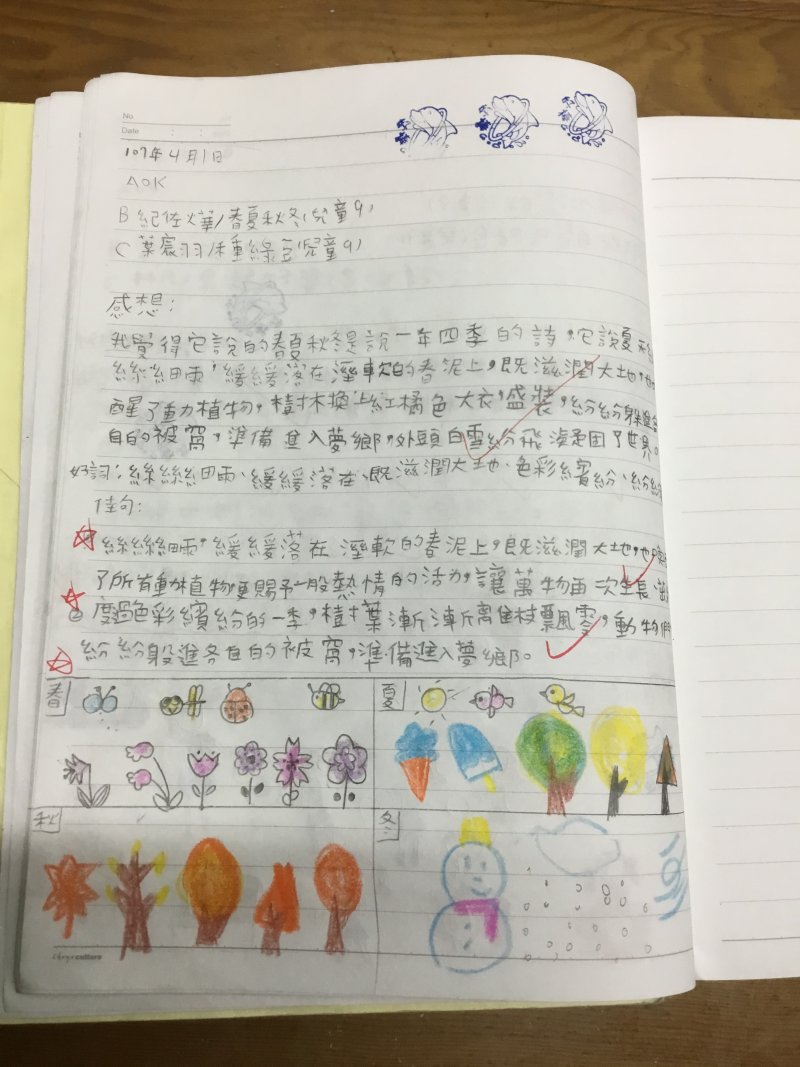 No
Date : :
107年4月1日
AOK
B 紀佐燁/春夏秋冬(兒童9)
C 葉宸羽/種綠豆(兒童9)
感想:
我覺得它說的春夏秋冬是說一年四季的詩,它說夏
絲絲細雨,緩緩落在溼軟的春泥上,既滋潤大地,也
醒了動植物,樹木換上紅橘色大衣,盛裝,紛紛躲進各
自的被窩,準備進入夢鄉,外頭白雪紛飛凝固了世界。
好詞:絲絲細雨、緩緩落在、既滋潤大地、色彩繽紛、紛紛
佳句:
絲絲細雨,緩緩落在溼軟的春泥上,既滋潤大地,也喚
了所有動植物更賜予一股熱情的活力,讓萬物再次生長
②度過色彩繽紛的一季,樹葉漸漸離住枝飄零,動物們
紛紛躲進各自的被窩,準備進入夢鄉。
春 夏
秋 冬
culture